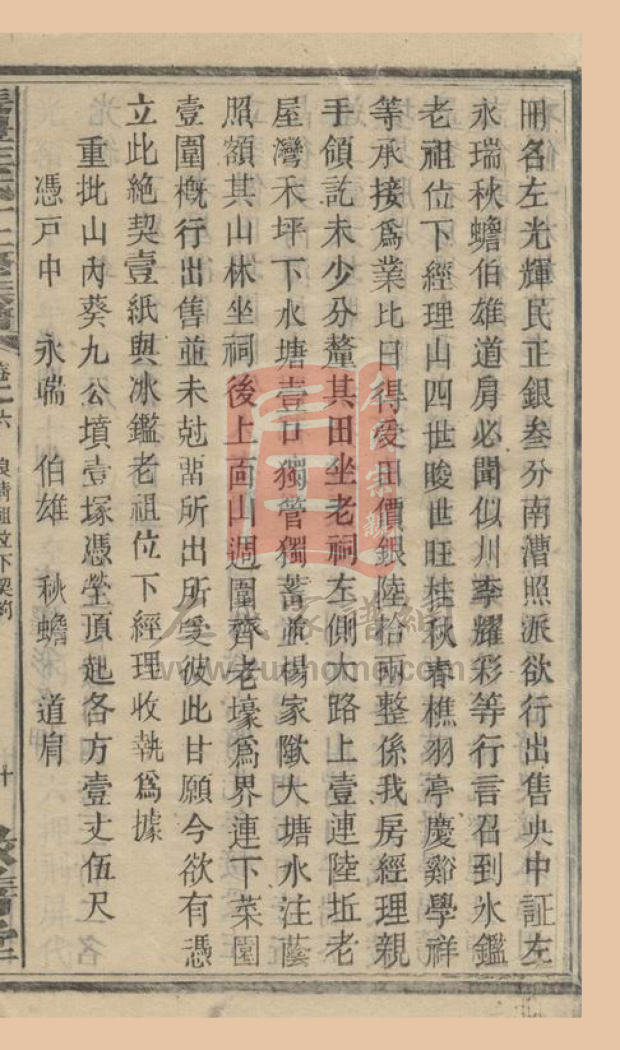 冊名左光輝民正銀叁分南漕照派欲行出售央中証左
永瑞秋蟾伯雄道肩必聞似川李耀彩等行言召到氷鑑
老祖位下經理山四世畯世旺桂秋春樵羽亭慶谿學祥
等承接爲業比日得受田價銀陸拾兩整係我房經理親
手領訖未少分釐其田坐老祠左側大路上壹連陸坵老
屋灣禾坪下水塘壹口獨管獨蓄並楊家隞大塘水注蔭
照額其山林坐祠後上面山週圍齊老壕爲界連下菜園
壹圍槪行出售並未尅畱所出所受彼此甘願今欲有憑
立此絶契壹紙與氷鑑老祖位下經理收執爲據
重批山內葵九公墳壹塚憑塋頂起各方壹丈伍尺
憑戸中 永喘 伯雄 秋蟾 道肩
卷 六 位下契約
十
www.zuphome.com